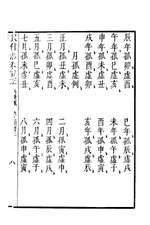 辰年孤卯虛酉　巳年孤辰虛戌
午年孤巳虛亥　未年孤午虛子
申年孤未虛丑　酉年孤申虛寅
戌年孤酉虛卯　亥年孤戌虛辰
月孤虛例
正月孤丑虛未　二月孤寅虛申
三月孤卯虛酉　四月孤辰虛戌
五月孤巳虛亥　六月孤午虛子
七月孤未虛丑　八月孤申虛寅
八